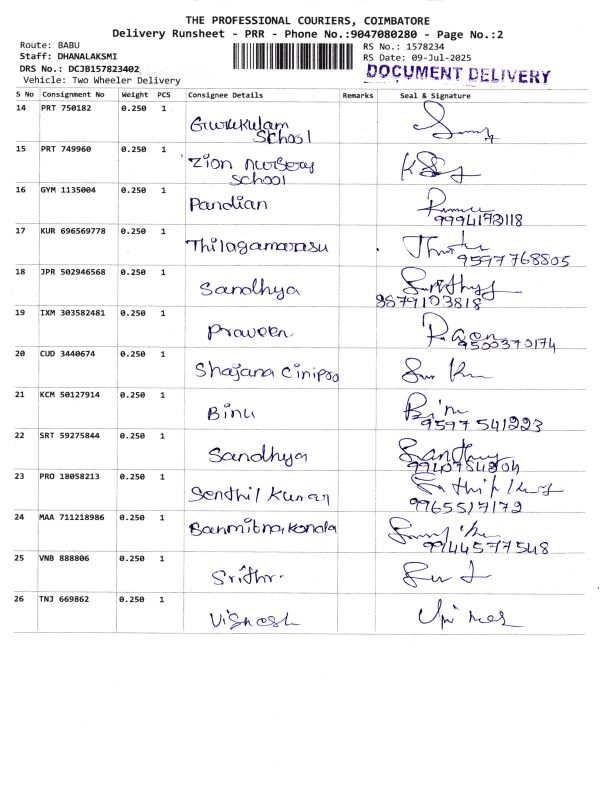 THE PROFESSIONAL COURIERS, COIMBATORE
Delivery Runsheet - PRR - Phone No.:9047080280 - Page No.:2
Route: BABU
RS No.: 1578234
Staff: DHANALAKSMI
RS Date: 09-Jul-2025
DRS No.: DCJB157823402
DOCUMENT DELIVERY
Vehicle: Two Wheeler Delivery
S No Consignment No Weight PCS Consignee Details Remarks Seal & Signature
14 PRT 750182 0.250 1
Gurukulam
School
15 PRT 749960 0.250 1
Zion nursery
school
16 GYM 1135004 0.250 1
Pandian
9994172118
17 KUR 696569778 0.250 1
Thilagamarasu
9597768805
18 JPR 502946568 0.250 1
Sandhya
9879103818
19 IXM 303582481 0.250 1
Praveen
9500370174
20 CUD 3440674 0.250 1
Shajana Cinipro
21 KCM 50127914 0.250 1
Binu Binu
9597541223
22 SRT 59275844 0.250 1
Sandhya Sandhya
9940784204
23 PRO 18058213 0.250 1
Senthil Kumar
9965517172
24 MAA 711218986 0.250 1
9944577548
25 VNB 888806 0.250 1
26 TNJ 669862 0.250 1
Vignesh